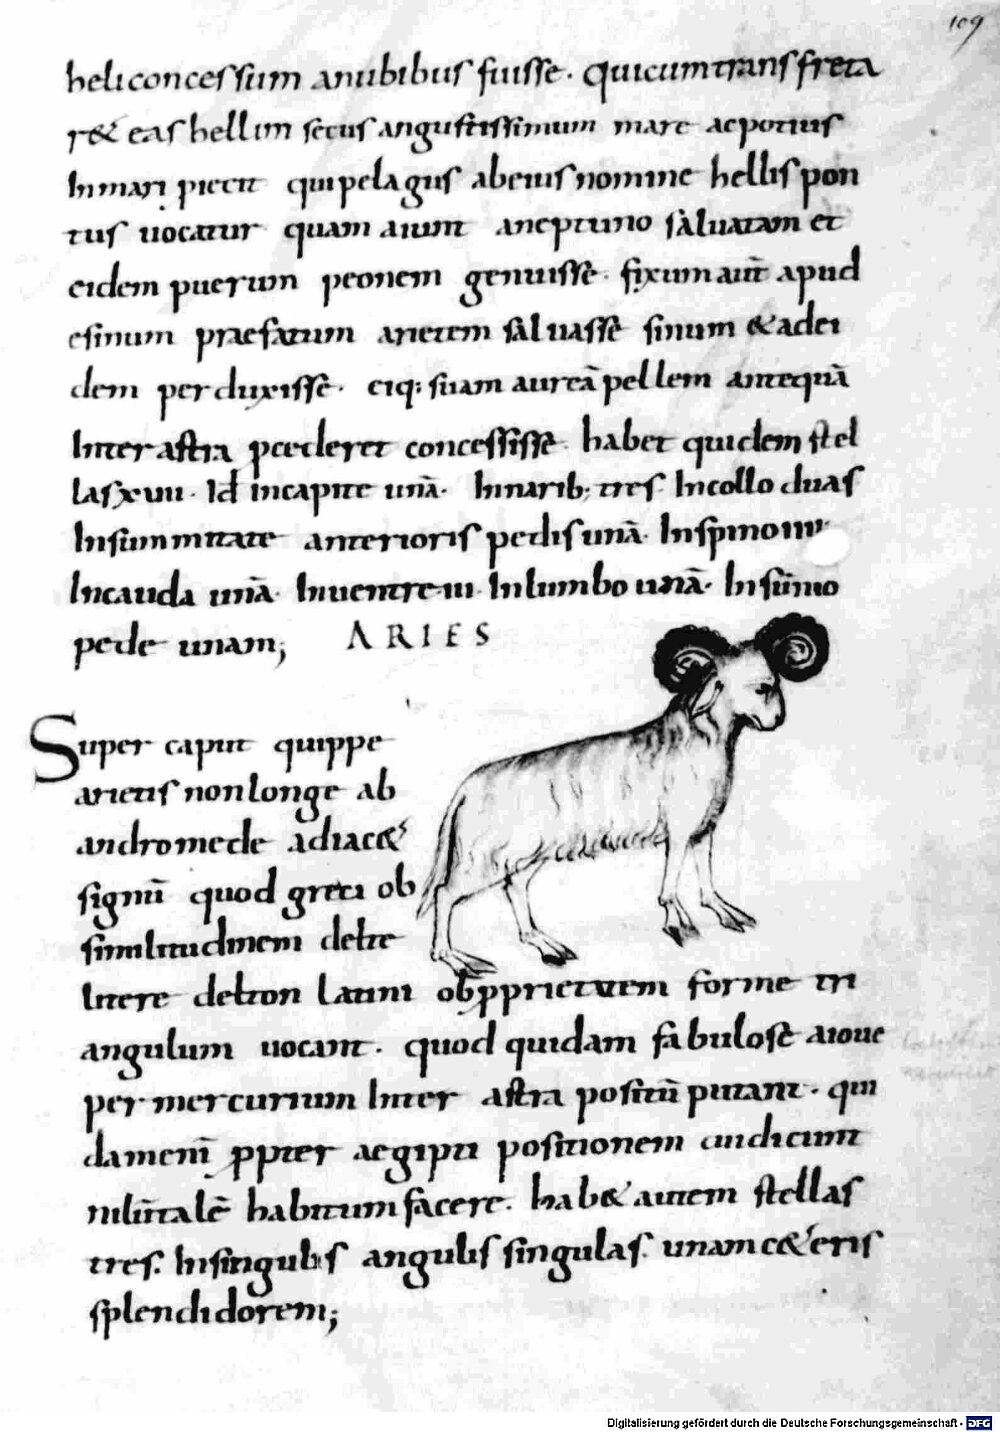 109
heli concessum anubibus fuisse. quicum transfreta
r& eas hellim secus angustissimum mare ac potius
In mari piecit qui pelagus ab eius nomine hellispon
tus uocatur quam aiunt a neptuno saluatam et
eidem puerum peonem genuisse. fixum aut̄ apud
esinum praefatum arietem saluasse sinum & ad ei
dem perduxisse. eiq: suam aureā pellem antequā
Inter astra pcederet concessisse. habet quidem stel
las xuii. Id In capite unā. In narib; tres. In collo duas
In summitate anterioris pedis unā. In spino iiii
In cauda unā. In uentre iii. In lumbo unā. In sūmo
pede unam;
ARIES
Super caput quippe
arietis non longe ab
andromede adiac&
signū quod greci ob
similitudinem delte
litere delton latini ob pprietatem forme tri
angulum uocant. quod quidam fabulose a ioue
per mercurium Inter astra positū putant. qui
dam enī ppter aegipti positionem
habitum facere. hab& autem stellas
tres. In singulis angulis singulas. unam c&eris
splendidorem;
Digitalisierung gefördert durch die Deutsche Forschungsgemeinschaft - DFG